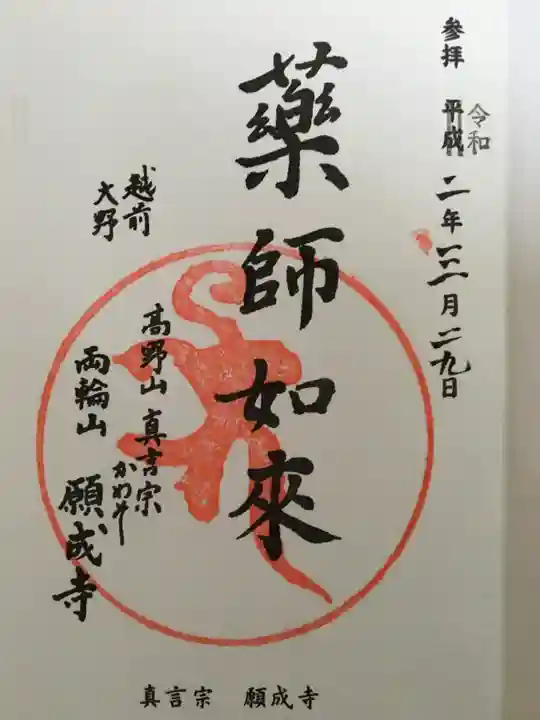 参拝 平成 令和 二年三月二九日
薬師如來
越前
大野
高野山 真言宗
かわそ
両輪山 願成寺
真言宗 願成寺